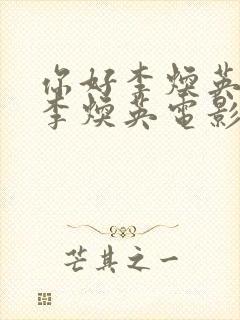 你好李焕英
李焕英电影
芒其之一